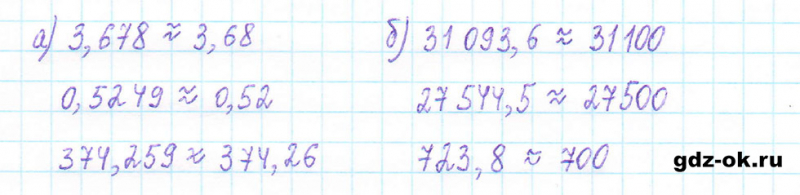 а) 3,678 ≈ 3,68
0,5249 ≈ 0,52
374,259 ≈ 374,26
б) 31 093,6 ≈ 31100
27 544,5 ≈ 27500
723,8 ≈ 700
gdz-ok.ru